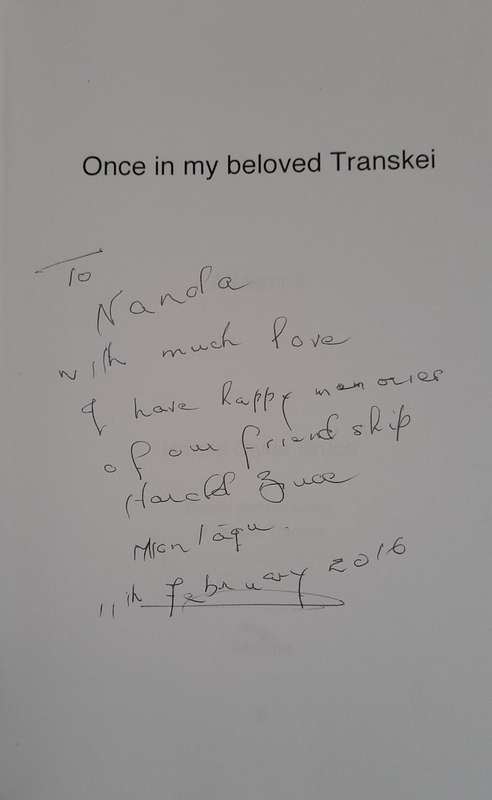 Once in my beloved Transkei
To
Nanda
with much love
I have happy memories
of our friendship
Harold
Montagu.
11th February 2016